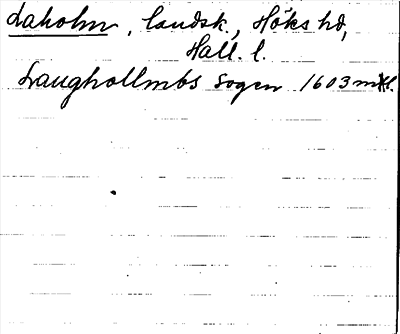 Laholm, landsk., Höks hd,
Hall. l.
Laughollmbs sogen 1603 mtl.